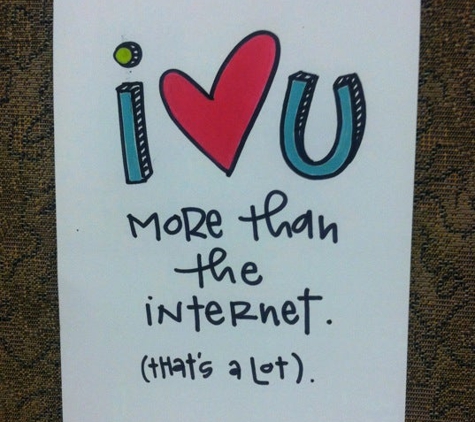 i ♥ U
MoRe than
the
iNteRNet.
(tHat's a Lot).